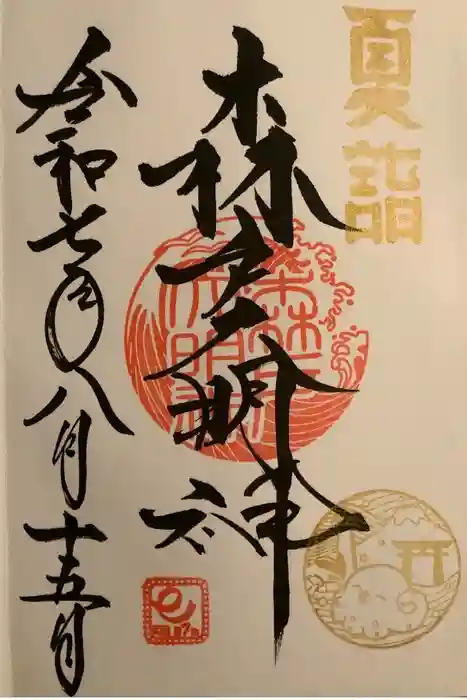 夏詣
森戸大明神
令和七年八月十五日
森戸
大明神